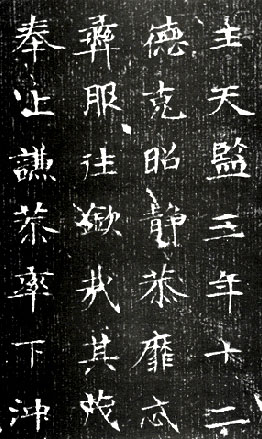 主天監三年十二
德克昭靜恭靡忒
彝服往猷我其
奉上謙恭率下沖